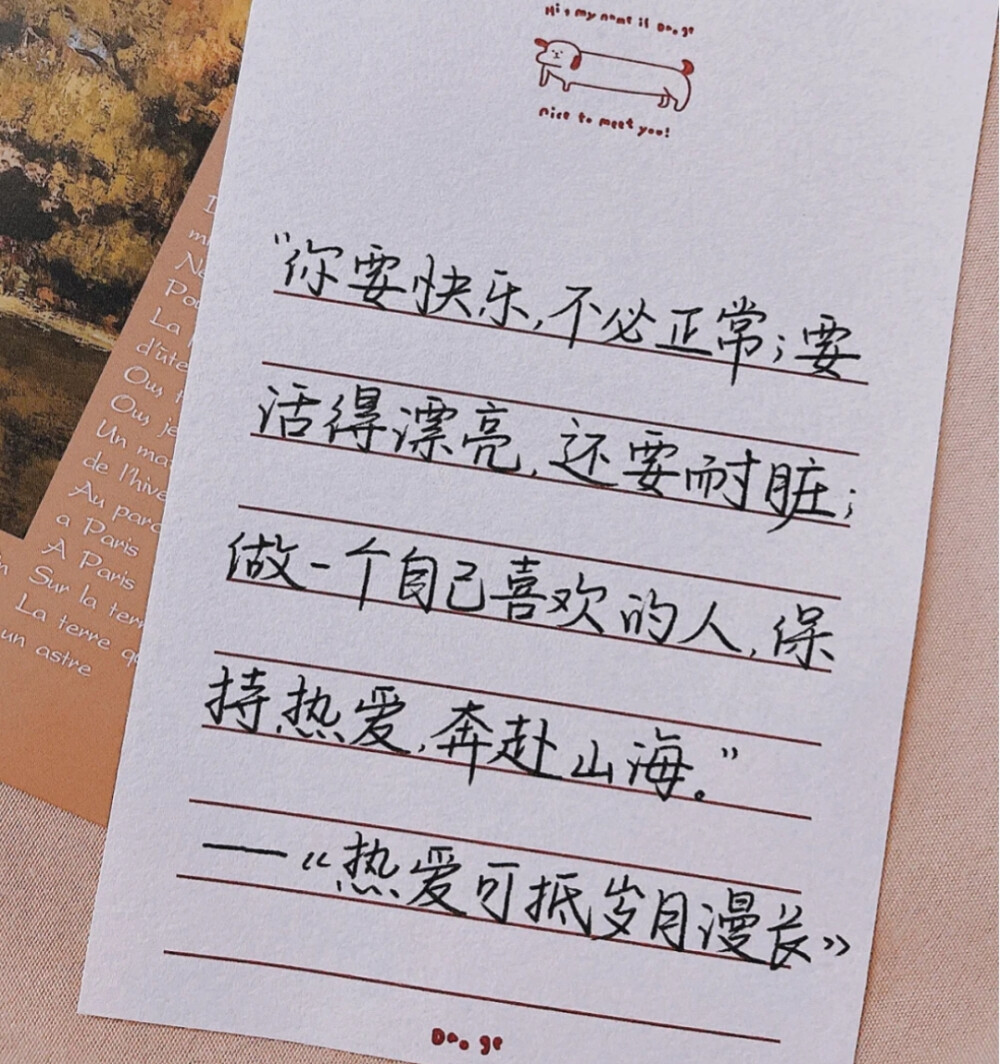 Hi, my name is Do. ge
nice to meet you!
“你要快乐,不必正常;要
活得漂亮,还要耐脏;
做一个自己喜欢的人,保
持热爱,奔赴山海。”
——《热爱可抵岁月漫长》
Do. ge
La
d'ûte
Ous
Ous je
Un ma
de l'hive
Au parc
a Paris
A Paris
Sur la terr
La terre q
un astre